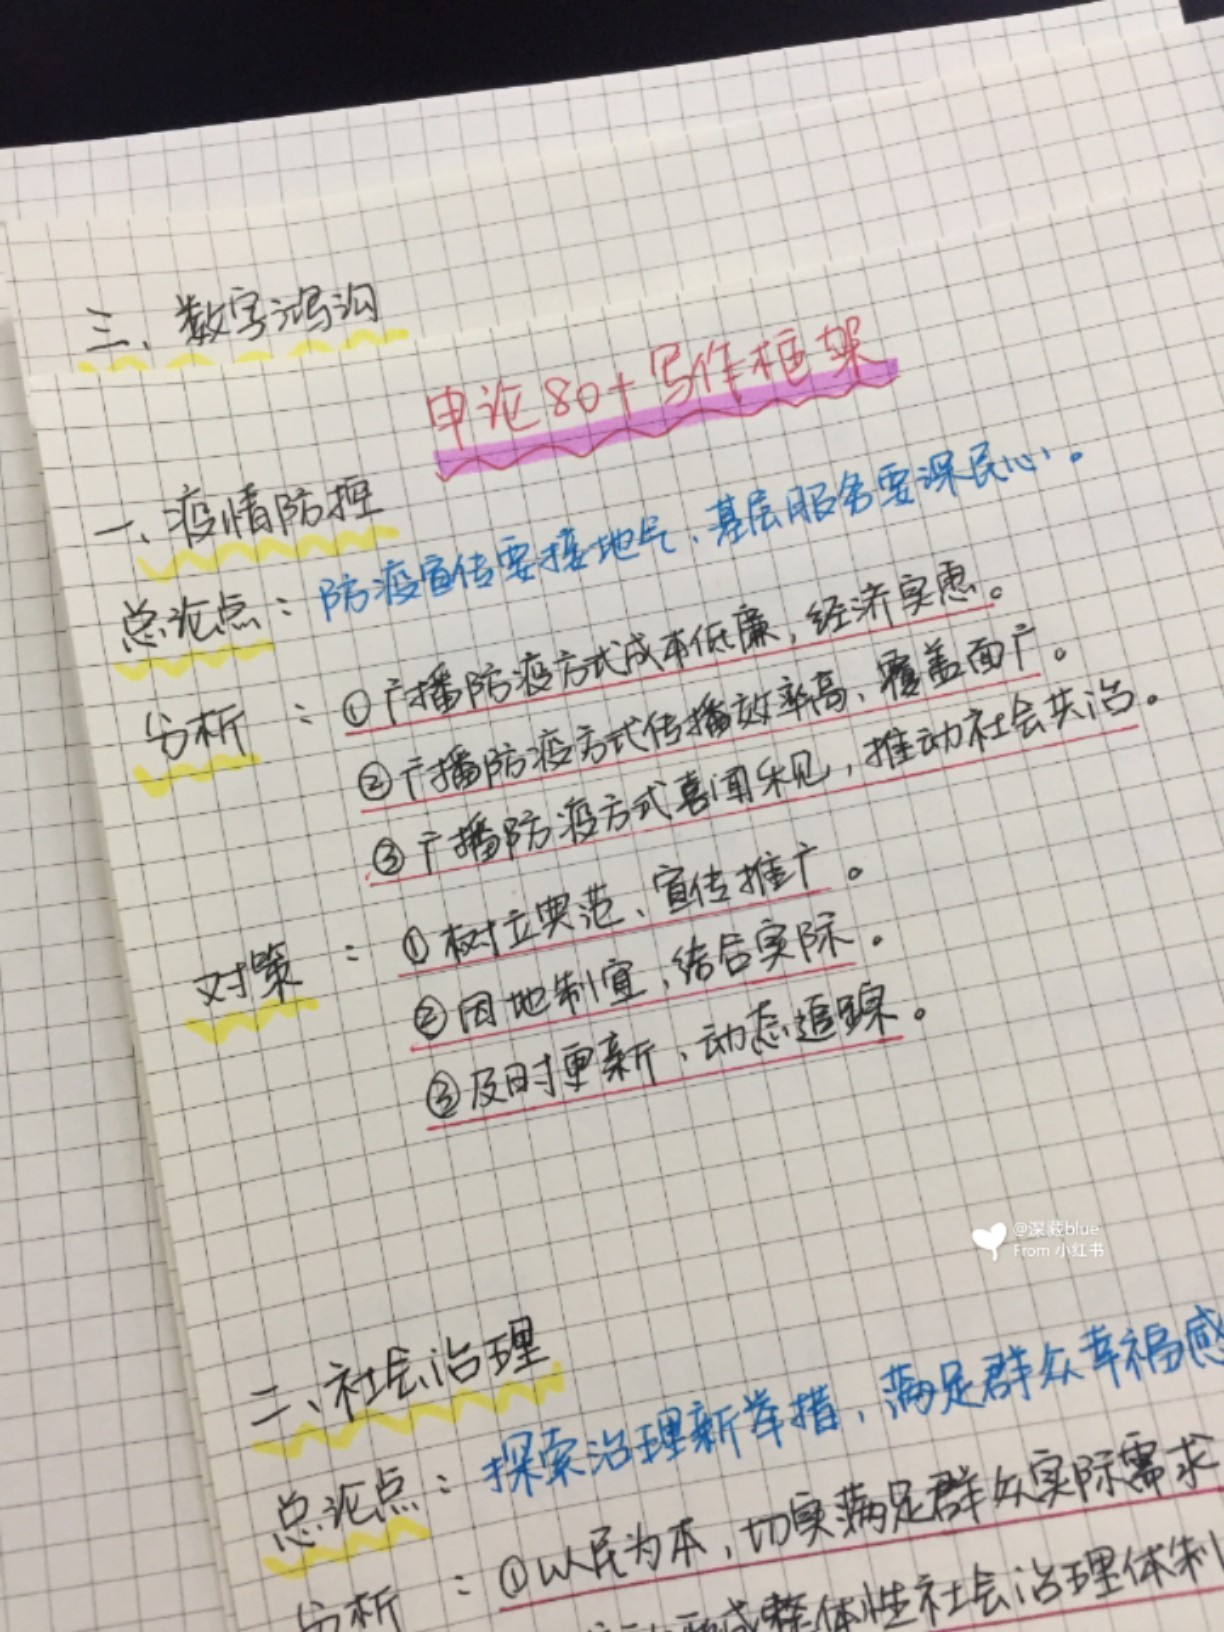 三、数字鸿沟
申论80+写作框架
一、疫情防控
总论点：防疫宣传要接地气、基层服务要深民心。
分析：①广播防疫方式成本低廉，经济实惠。
②广播防疫方式传播效率高、覆盖面广。
③广播防疫方式喜闻乐见，推动社会共治。
对策：①树立典范、宣传推广。
②因地制宜，结合实际。
③及时更新、动态追踪。
@深巷blue
From 小红书
二、社会治理
总论点：探索治理新举措，满足群众幸福感
分析：①以民为本，切实满足群众实际需求
成整体性社会治理体制